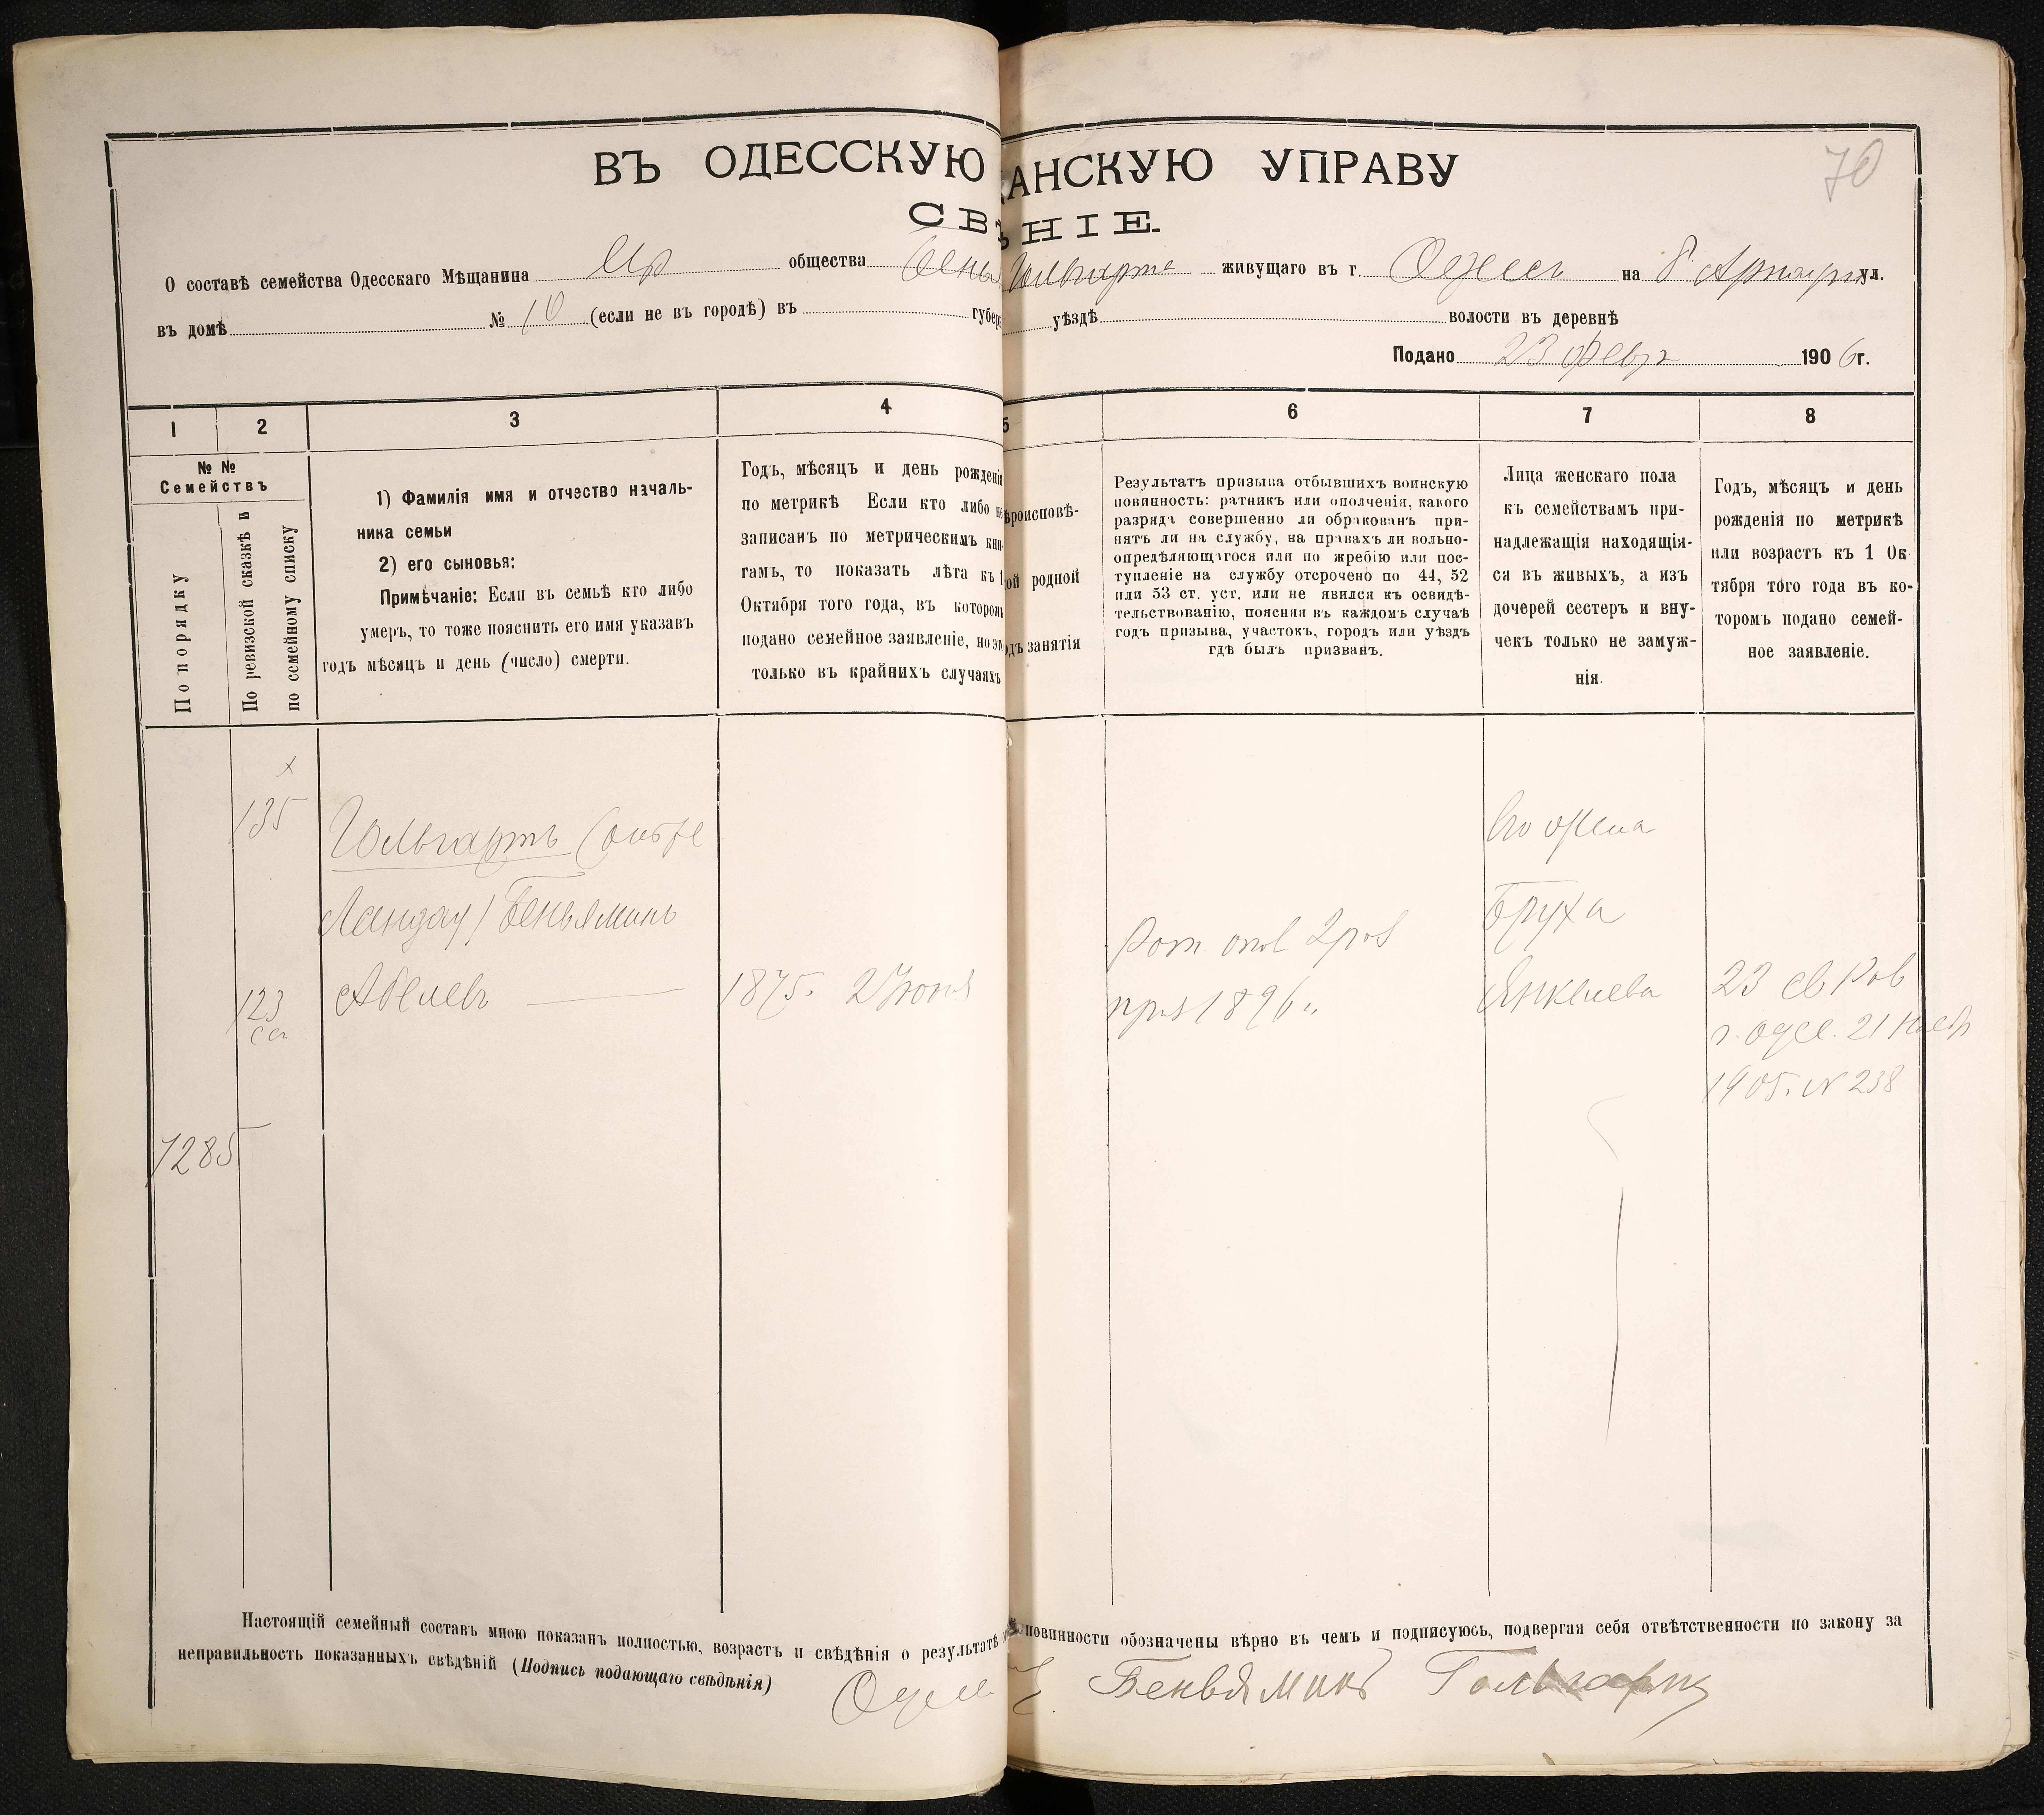 70
ВЪ ОДЕССКУЮ АНСКУЮ УПРАВУ
СВѢНІЕ.
О составѣ семейства Одесскаго Мѣщанина Евр общества Бенья Гольгарта живущаго въ г. Одессѣ на Б. Арнаутул.
въ домѣ № 10 (если не въ городѣ) въ губер уѣздѣ волости въ деревнѣ
Подано 23 Февр 1906г.
1 2 3 4 5 6 7 8
№№
Семействъ
По порядку
По ревизской сказкѣ и
по семейному списку
1) Фамилія имя и отчество началь-
ника семьи
2) его сыновья:
Примѣчаніе: Если въ семьѣ кто либо
умеръ, то тоже пояснить его имя указавъ
годъ мѣсяцъ и день (число) смерти.
Годъ, мѣсяцъ и день рожденія
по метрикѣ Если кто либо не
записанъ по метрическимъ кни-
гамъ, то показать лѣта къ 1
Октября того года, въ которомъ
подано семейное заявленіе, но это
только въ крайнихъ случаяхъ
ѣроисповѣ-
ой родной
одъ занятія
Результатъ призыва отбывшихъ воинскую
повинность: ратникъ или ополченія, какого
разряда совершенно ли обракованъ при-
нятъ ли на службу, на правахъ ли вольно-
опредѣляющагося или по жребію или пос-
тупленіе на службу отсрочено по 44, 52
или 53 ст. уст. или не явился къ освидѣ-
тельствованію, поясняя въ каждомъ случаѣ
годъ призыва, участокъ, городъ или уѣздъ
гдѣ былъ призванъ.
Лица женскаго пола
къ семействамъ при-
надлежащія находящія-
ся въ живыхъ, а изъ
дочерей сестеръ и вну-
чекъ только не замуж-
нія.
Годъ, мѣсяцъ и день
рожденія по метрикѣ
или возрастъ къ 1 Ок-
тября того года въ ко-
торомъ подано семей-
ное заявленіе.
х
135
Гольгартъ (онъ же
Ландау) Беньяминъ
Абелевъ
123
сп
1875. 2 Іюня
Рат. опол 2 раз
приз 1896 г.
Его жена
Бруха
Янкелева
23 св Рав
г. Одес. 21 Нояб
1905. № 238
1285
Настоящій семейный составъ мною показанъ полностью, возрастъ и свѣдѣнія о результатѣ повинности обозначены вѣрно въ чемъ и подписуюсь, подвергая себя отвѣтственности по закону за
неправильность показанныхъ свѣдѣній (Подпись подающаго свѣдѣнія)
Беньяминъ Гольгартъ